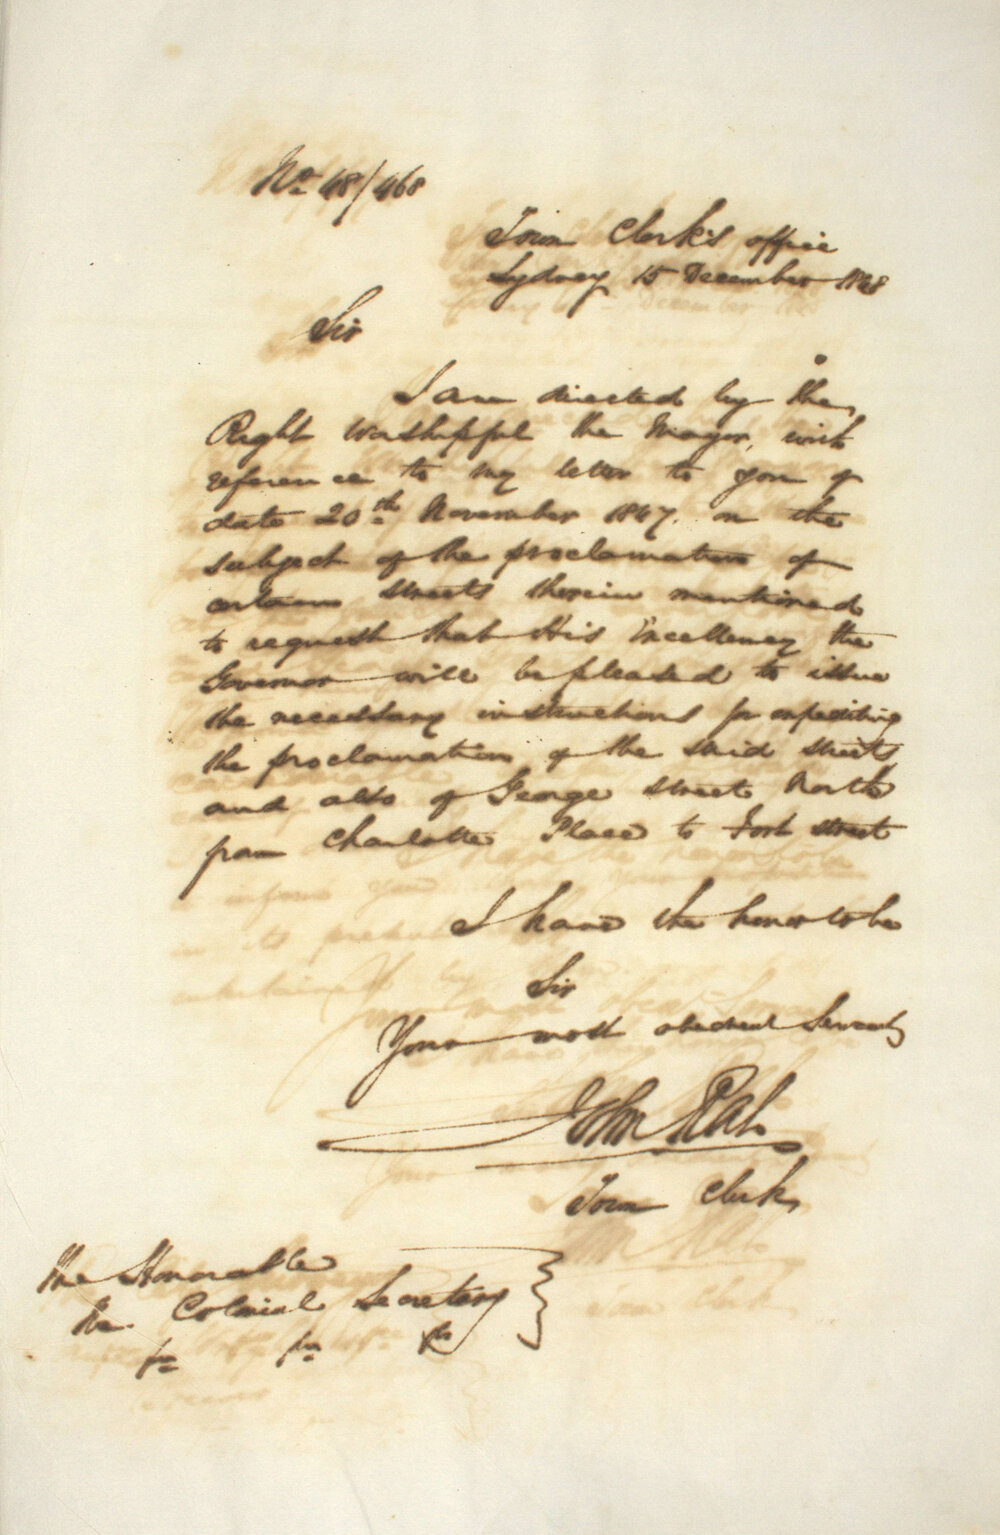 No. 48/968
Town Clerk's office
Sydney 15 December 1848
Sir
I am directed by the
Right Worshipful the Mayor, with
reference to my letter to you of
date 20th November 1847. on the
subject of the proclamation of
certain streets therein mentioned
to request that His Excellency the
Governor will be pleased to issue
the necessary instructions for expediting
the proclamation of the said streets
and also of George street North
from Charlotte Place to Fort street
I have the honor to be
Sir
Your most obedient Servant
John Rae
Town Clerk
The Honorable
the Colonial Secretary